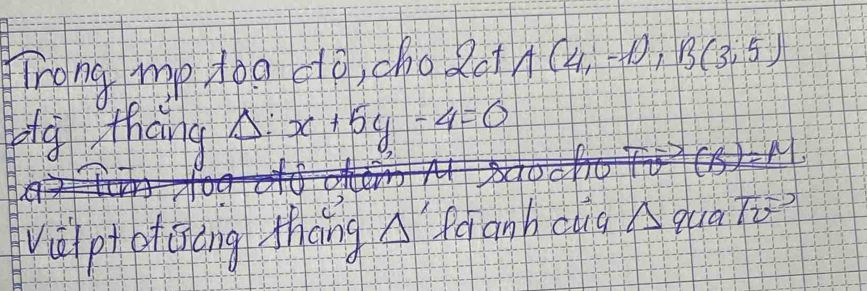 Trong mp toạ độ, cho 2đt A(4, -1), B(3, 5)
đg thẳng Δ: x + 5y - 4 = 0
a) Tìm toạ độ điểm M sao cho Tv→ (B) = M
Viết pt đường thẳng Δ' là ảnh của Δ qua Tv→